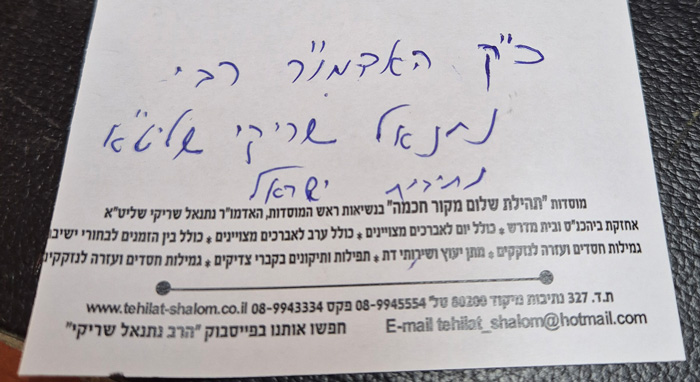 כ"ק האדמו"ר רבי
נתנאל שריקי שליט"א
נתיבות ישראל
מוסדות "תהילת שלום מקור חכמה" בנשיאות ראש המוסדות, האדמו"ר נתנאל שריקי שליט"א
אחזקת ביהכנ"ס ובית מדרש * כולל יום לאברכים מצויינים * כולל ערב לאברכים מצויינים * כולל בין הזמנים לבחורי ישיבו
גמילות חסדים ועזרה לנזקקים * מתן יעוץ ושירותי דת * תפילות ותיקונים בקברי צדיקים * גמילות חסדים ועזרה לנזקקים
ת.ד. 327 נתיבות מיקוד 80200 טל' 08-9945554 פקס 08-9943334 www.tehilat-shalom.co.il
E-mail tehilat_shalom@hotmail.com חפשו אותנו בפייסבוק "הרב נתנאל שריקי"